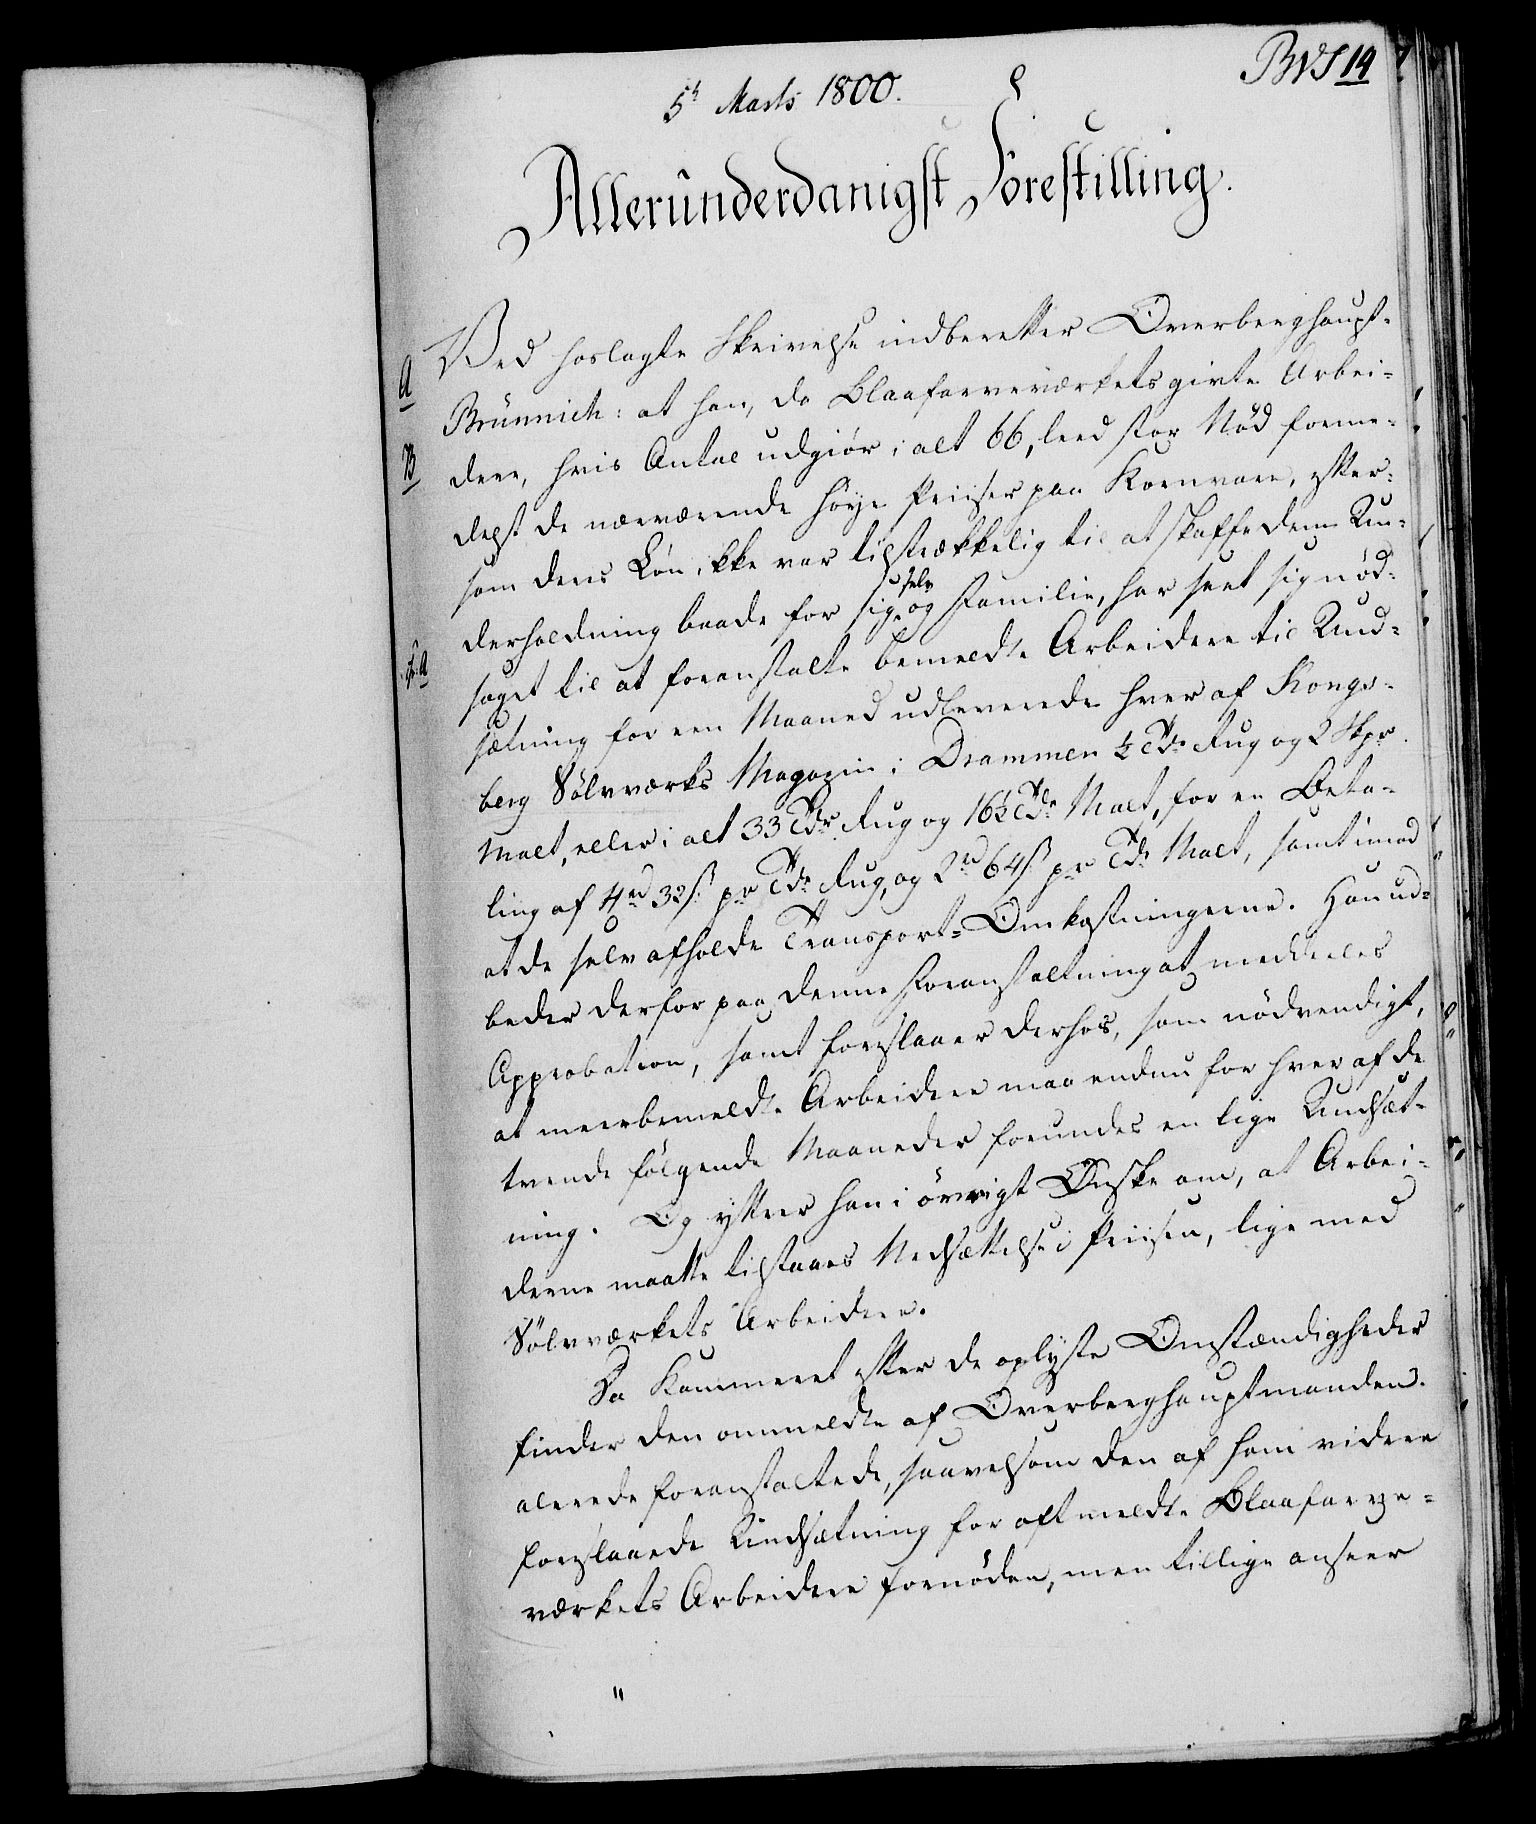 BVS 14
5t Marts 1800.
Allerunderdanigst Forestilling.
Ved hoslagte Skrivelse indberetter Overberghaupt-
A
Brünnich: at han, da Blaafarveværkets givte Arbei-
B
dere, hvis Antal udgiør i alt 66, leed stor Nød forme-
delst de nærværende høye Priiser paa Kornvare, efter-
som deres Løn ikke var tilstrækkelig til at skaffe dem Un-
derholdning baade for sig selv og Familie, har seet sig nød-
f: a
saget til at foranstalte bemeldte Arbeidere til Und-
sætning for een Maaned udleverede hver af Kongs-
berg Sølvværks Magazin i Drammen ½ Tde Rug og 2 Skpr.
Malt, eller i alt 33 Tdr Rug og 16½ Tde Malt, for en Beta-
ling af 4rd 32s pr Tde Rug, og 2rd 64s pr Tde Malt, samt imod
at de selv afholde Transport-Omkostningerne. Han ud-
beder derfor paa denne Foranstaltning at meddeeles
Approbation, samt foreslaaer derhos, som nødvendigt,
at meerbemeldte Arbeidere maa endnu for hver af de
tvende følgende Maaneder forundes en lige Undsæt-
ning. Og yttrer han i øvrigt Ønske om, at Arbei-
derne maatte tilstaaes Nedsættelse i Priisen, lige med
Sølvværkets Arbeidere.
Da Kammeret efter de oplyste Omstændigheder
finder den ommeldte af Overberghauptmanden
allerede foranstaltede, saavelsom den af ham videre
foreslaaede Undsætning for oftmeldte Blaafarve-
værkets Arbeidere fornøden, men tillige anseer